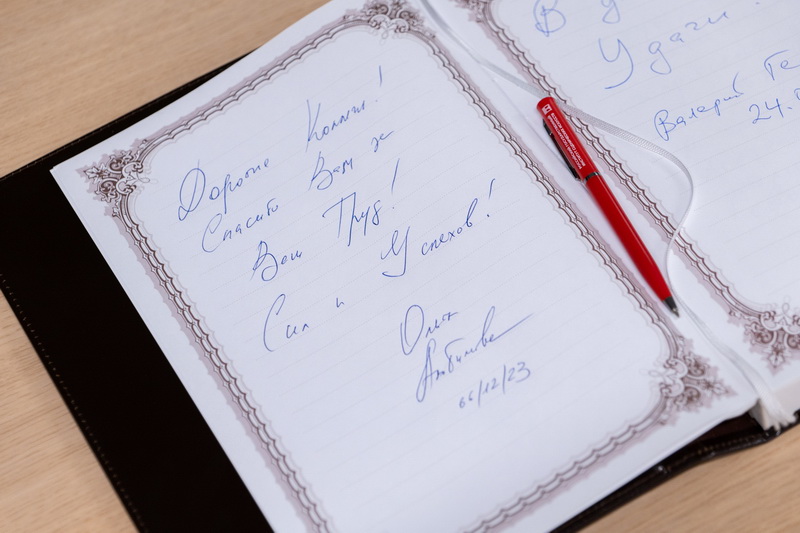 Дорогие Коллеги!
Спасибо Вам за
Ваш Труд!
Сил и Успехов!
Ольга
Любимова
06/12/23
В
Удачи
Валерий Ге
24.